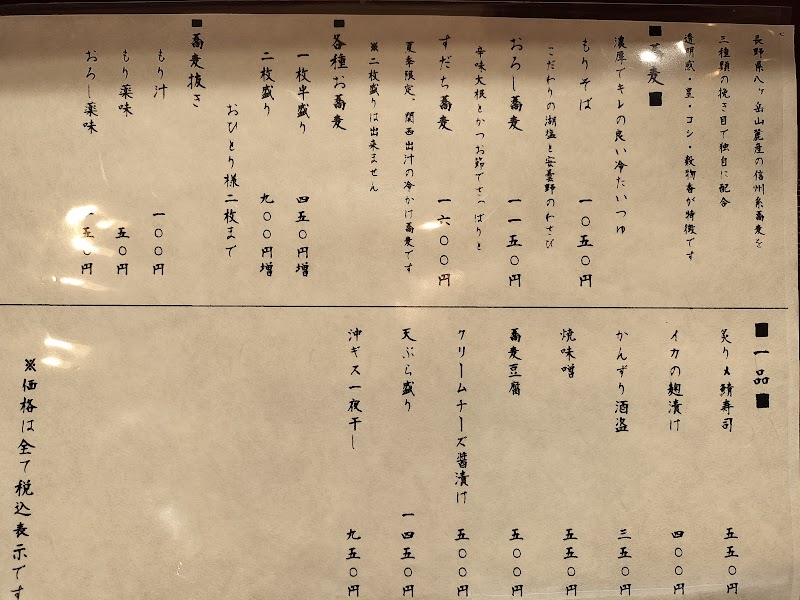 長野県八ヶ岳山麓産の信州系蕎麦を
三種類の挽き目で独自に配合
透明感・星・コシ・穀物香が特徴です
■蕎麦■
濃厚でキレの良い冷たいつゆ
もりそば 一〇五〇円
こだわりの湖塩と安曇野のわさび
おろし蕎麦 一一五〇円
辛味大根とかつお節でさっぱりと
すだち蕎麦 一六〇〇円
夏季限定、関西出汁の冷かけ蕎麦です
※二枚盛りは出来ません
■各種お蕎麦
一枚半盛り 四五〇円増
二枚盛り 九〇〇円増
おひとり様二枚まで
■蕎麦抜き
もり汁 一〇〇円
もり薬味 五〇円
おろし薬味 一五〇円
■一品■
炙り〆鯖寿司 五五〇円
イカの麹漬け 四〇〇円
かんずり酒盗 三五〇円
焼味噌 五五〇円
蕎麦豆腐 五〇〇円
クリームチーズ醤漬け 五〇〇円
天ぷら盛り 一四五〇円
沖ギス一夜干し 九五〇円
※価格は全て税込表示です